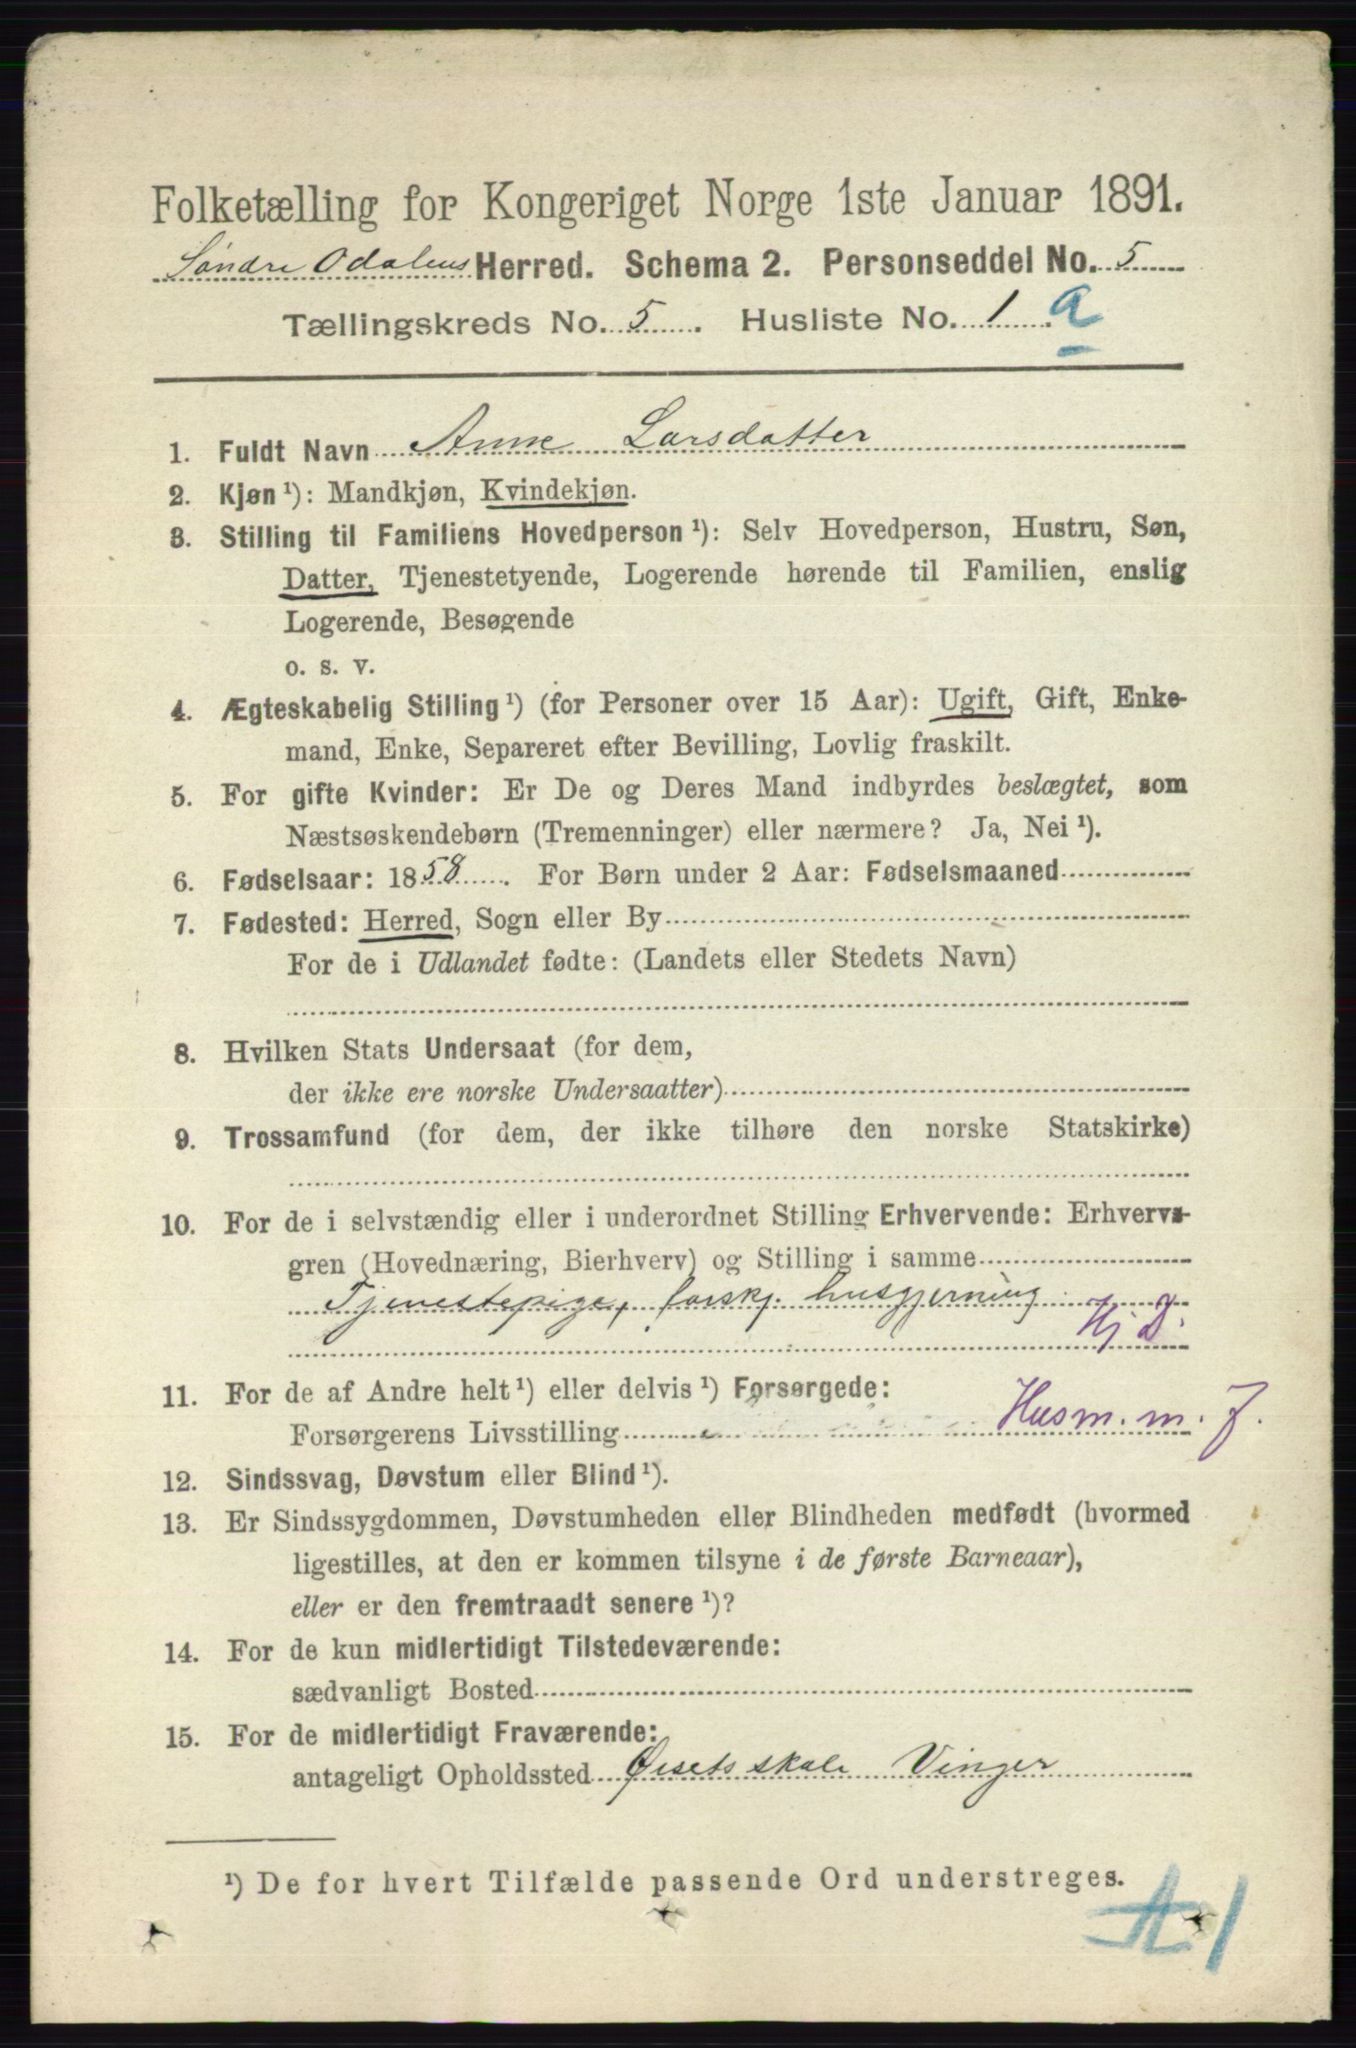 Folketælling for Kongeriget Norge 1ste Januar 1891.
Søndre Odalens Herred. Schema 2. Personseddel No. 5
Tællingskreds No. 5. Husliste No. 1 a
1. Fuldt Navn Anne Larsdatter
2. Kjøn ¹): Mandkjøn, Kvindekjøn.
3. Stilling til Familiens Hovedperson ¹): Selv Hovedperson, Hustru, Søn,
Datter, Tjenestetyende, Logerende hørende til Familien, enslig
Logerende, Besøgende
o. s. v.
4. Ægteskabelig Stilling ¹) (for Personer over 15 Aar): Ugift, Gift, Enke-
mand, Enke, Separeret efter Bevilling, Lovlig fraskilt.
5. For gifte Kvinder: Er De og Deres Mand indbyrdes beslægtet, som
Næstsøskendebørn (Tremenninger) eller nærmere? Ja, Nei ¹).
6. Fødselsaar: 1858. For Børn under 2 Aar: Fødselsmaaned
7. Fødested: Herred, Sogn eller By
For de i Udlandet fødte: (Landets eller Stedets Navn)
8. Hvilken Stats Undersaat (for dem,
der ikke ere norske Undersaatter)
9. Trossamfund (for dem, der ikke tilhøre den norske Statskirke)
10. For de i selvstændig eller i underordnet Stilling Erhvervende: Erhvervs-
gren (Hovednæring, Bierhverv) og Stilling i samme
Tjenestepige, forskj. husgjerning
Hj D.
11. For de af Andre helt ¹) eller delvis ¹) Forsørgede:
Forsørgerens Livsstilling Husm. m. J.
12. Sindssvag, Døvstum eller Blind ¹).
13. Er Sindssygdommen, Døvstumheden eller Blindheden medfødt (hvormed
ligestilles, at den er kommen tilsyne i de første Barneaar),
eller er den fremtraadt senere ¹)?
14. For de kun midlertidigt Tilstedeværende:
sædvanligt Bosted
15. For de midlertidigt Fraværende:
antageligt Opholdssted Øisets skole Vinger
¹) De for hvert Tilfælde passende Ord understreges.